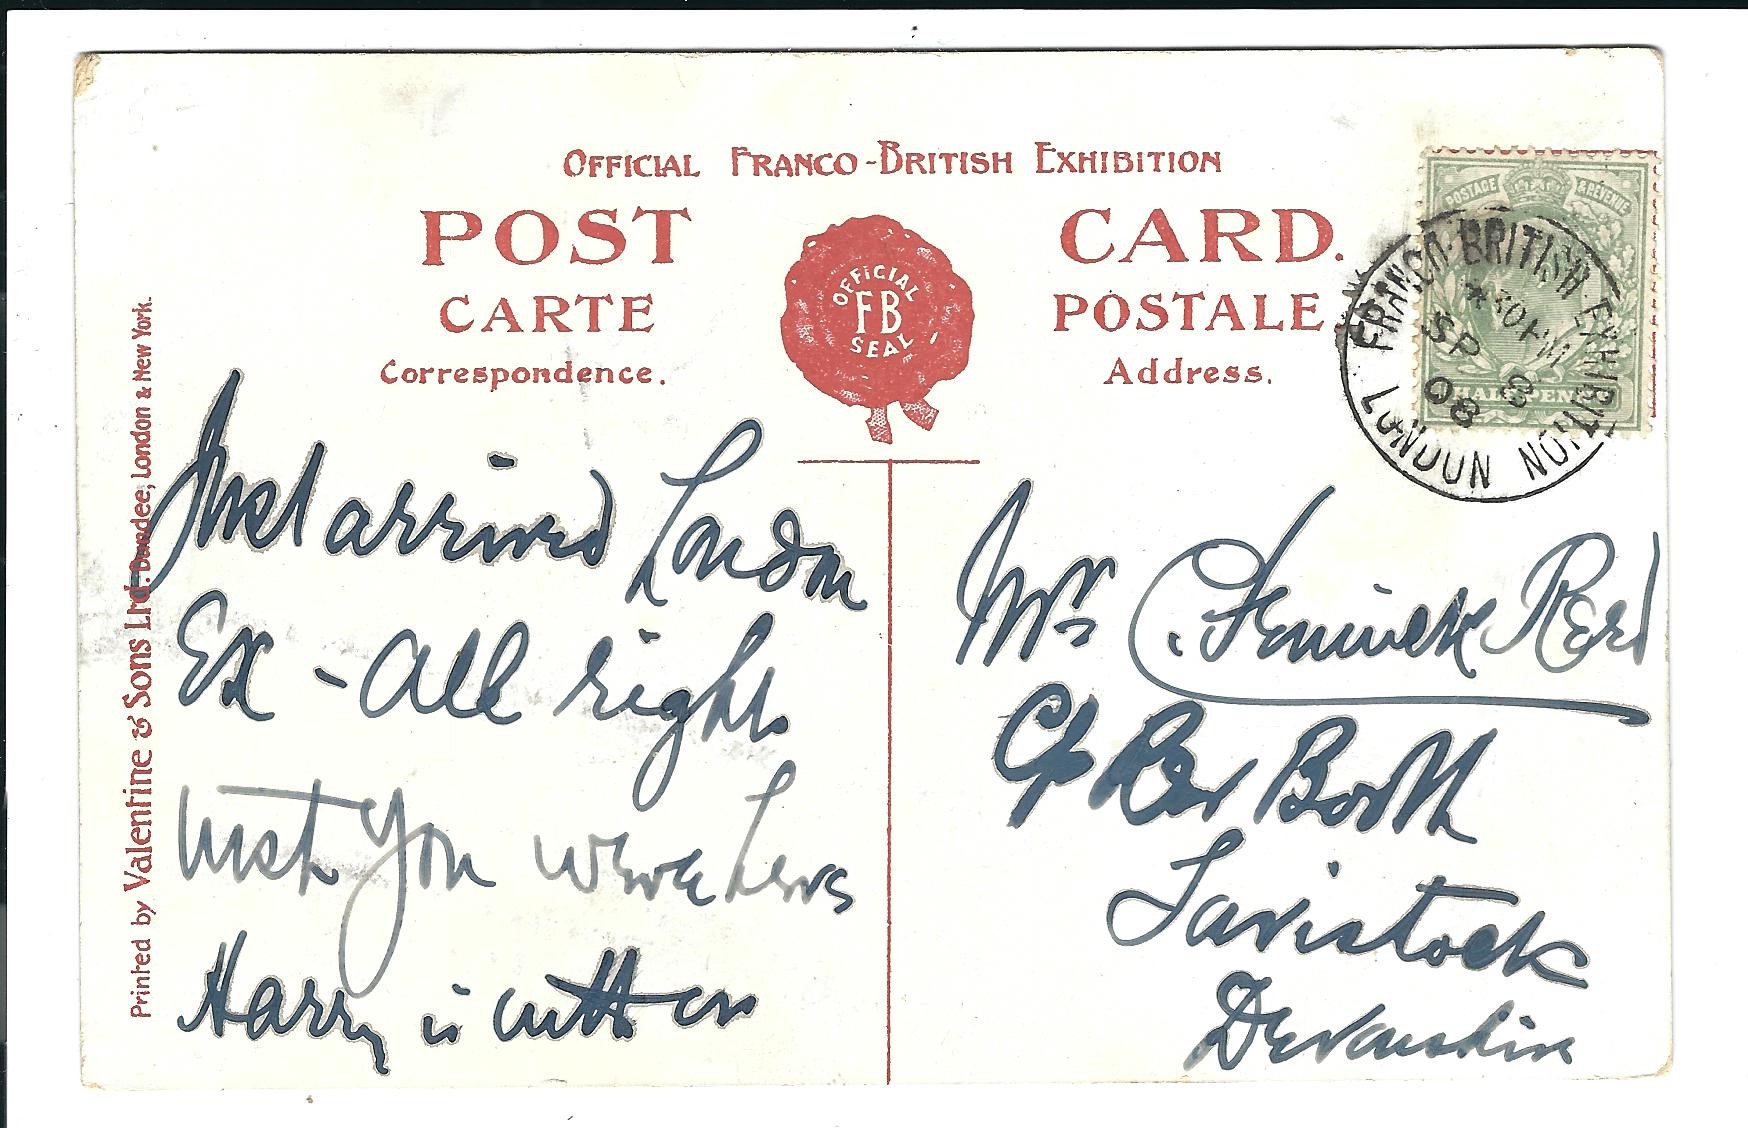 OFFICIAL FRANCO-BRITISH EXHIBITION
POST CARD.
CARTE POSTALE
Correspondence.
Address.
OFFICIAL
FB
SEAL
POSTAGE & REVENUE
HALFPENNY
FRANCO-BRITISH EXHIBITION
30 PM
SP 8
08
LONDON
Printed by Valentine & Sons Ltd. Dundee, London & New York.
Just arrived London
Ex - All right
wish you were here
Harry is with
Mrs C. Fenwick Reed
C/o Booth
Tavistock
Devonshire